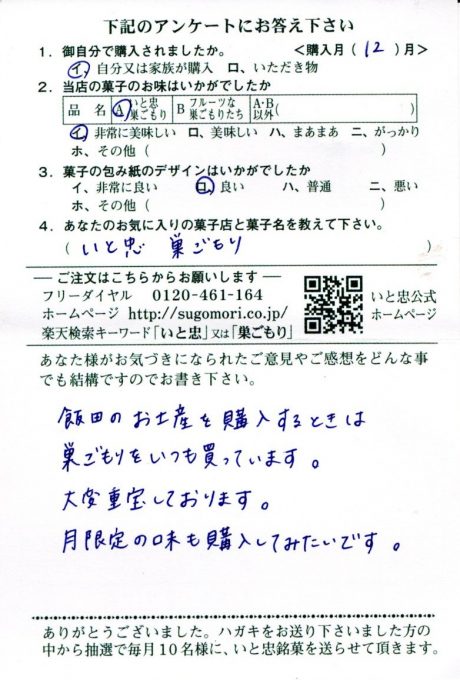 下記のアンケートにお答え下さい
1．御自分で購入されましたか。　＜購入月（ 12 ）月＞
イ、自分又は家族が購入　ロ、いただき物
2．当店の菓子のお味はいかがでしたか
品　名　A いと忠巣ごもり　B フルーツな巣ごもりたち　A・B以外（　　　）
イ、非常に美味しい　ロ、美味しい　ハ、まあまあ　ニ、がっかり
ホ、その他（
3．菓子の包み紙のデザインはいかがでしたか
イ、非常に良い　ロ、良い　ハ、普通　ニ、悪い
ホ、その他（
4．あなたのお気に入りの菓子店と菓子名を教えて下さい。
（ いと忠　巣ごもり ）
ご注文はこちらからお願いします
フリーダイヤル　0120-461-164
ホームページ　http://sugomori.co.jp/
楽天検索キーワード「いと忠」又は「巣ごもり」
いと忠公式
ホームページ
あなた様がお気づきになられたご意見やご感想をどんな事
でも結構ですのでお書き下さい。
飯田のお土産を購入するときは
巣ごもりをいつも買っています。
大変重宝しております。
月限定の味も購入してみたいです。
ありがとうございました。ハガキをお送り下さいました方の
中から抽選で毎月10名様に、いと忠銘菓を送らせて頂きます。